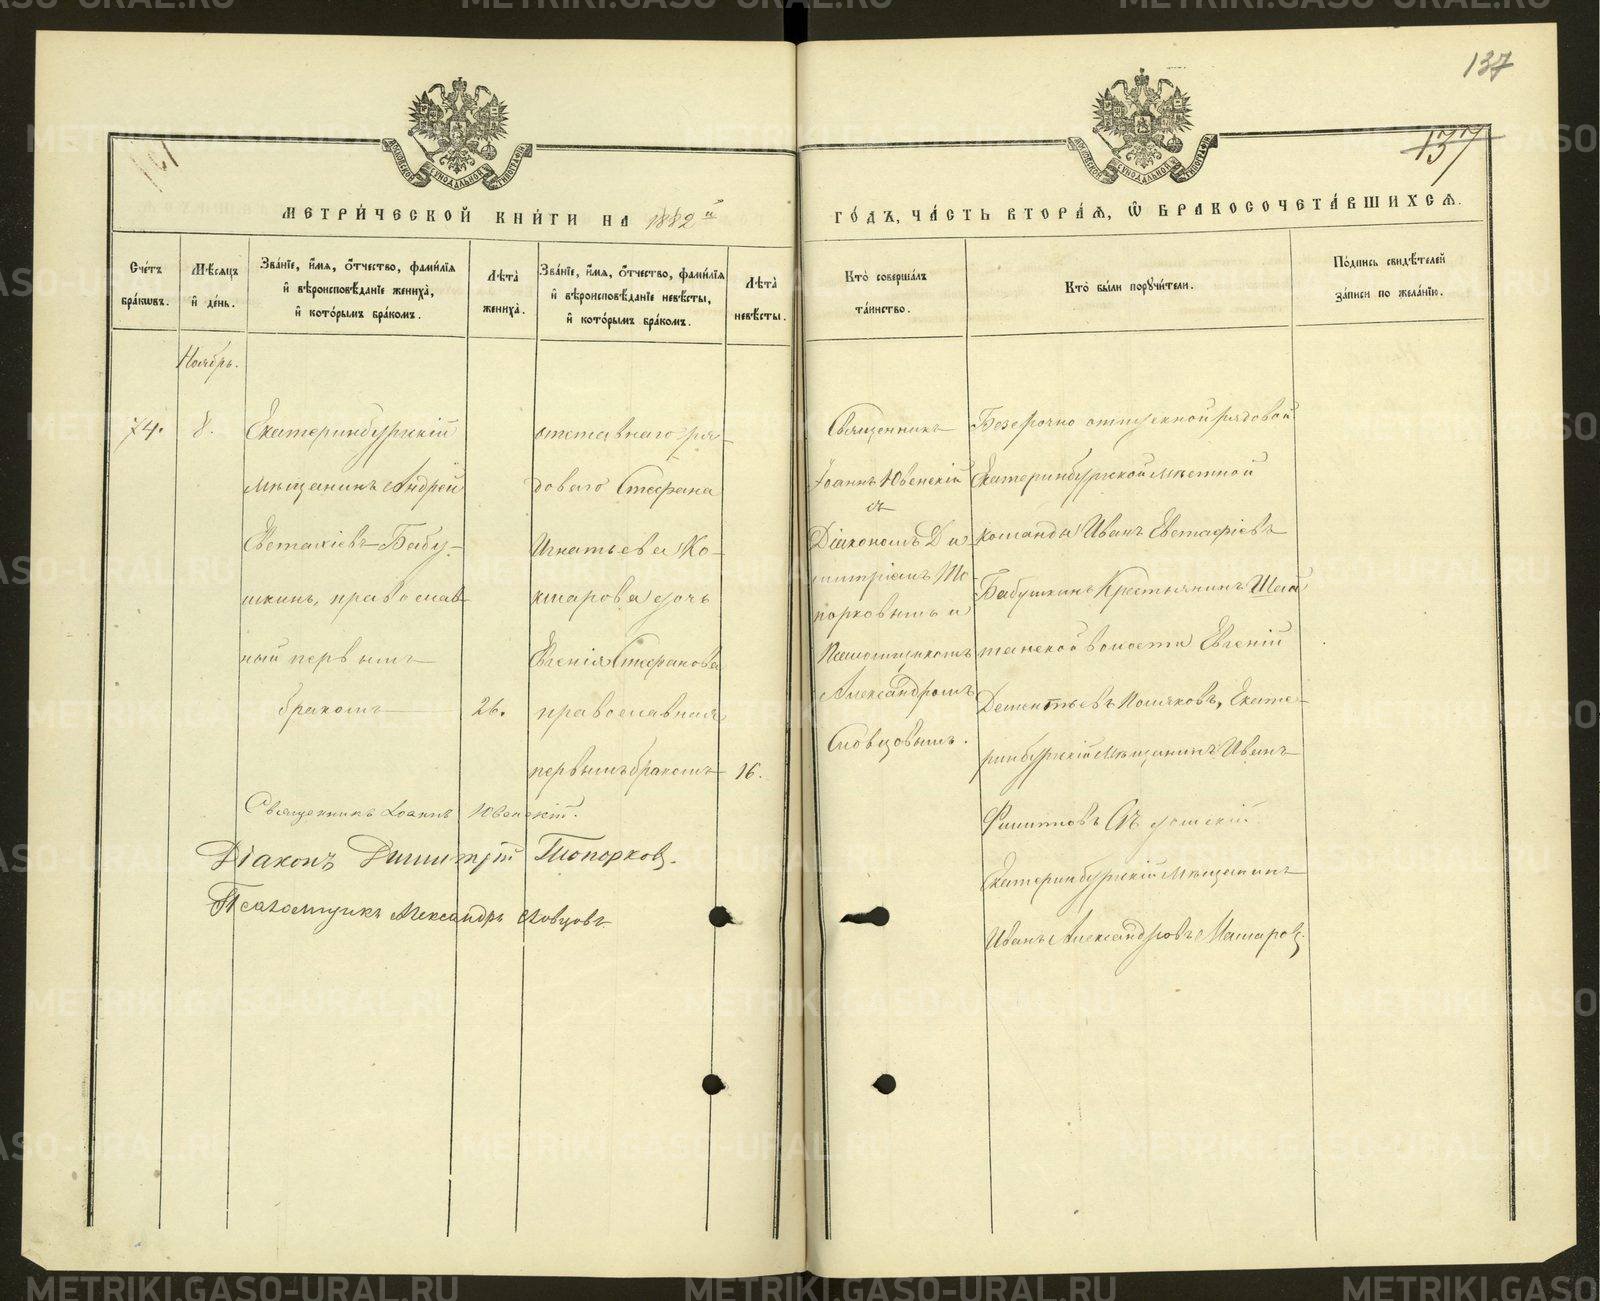 137
137
МОСКОВСКОЙ СѴНОДАЛЬНОЙ ТИПОГРАФІИ
МОСКОВСКОЙ СѴНОДАЛЬНОЙ ТИПОГРАФІИ
МЕТРИ́ЧЕСКОЙ КНИ́ГИ НА 1882й
ГО́ДЪ, ЧА́СТЬ ВТОРА́Я, Ѿ БРАКОСОЧЕТА́ВШИХСЯ.
Сче́тъ бра́кѡвъ.
Мѣ́сяцъ и҆ де́нь.
Зва́нїе, и҆́мя, ѻ҆́тчество, фами́лїя
и҆ вѣроисповѣ́данїе жениха̀,
и҆ кото́рымъ бра́комъ.
Лѣта̀ жениха̀.
Зва́нїе, и҆́мя, ѻ҆́тчество, фами́лїя
и҆ вѣроисповѣ́данїе невѣ́сты,
и҆ кото́рымъ бра́комъ.
Лѣта̀ невѣ́сты.
Кто̀ соверша́лъ
та́инство.
Кто̀ бы́ли порꙋчи́тели.
По́дпись свидѣ́телей
за́писи по жела́нїю.
Ноябрь.
74.
8.
Екатеринбургскій
мѣщанинъ Андрей
Евстафіевъ Бабу-
шкинъ, православ
ный первымъ
бракомъ
26.
отставнаго ря-
доваго Стефана
Игнатьева Ко-
кшарова дочь
Евгенія Стефанова
православная
первымъ бракомъ
16.
Священникъ
Іоаннъ Ювенскій
съ
Діакономъ Ди
митріемъ То
порковымъ и
Псаломщикомъ
Александромъ
Словцовымъ.
Безсрочно отпускной рядовой
Екатеринбургской мѣстной
команды Иванъ Евстафіевъ
Бабушкинъ Крестьянинъ Шема
танской волости Евгеній
Дементьевъ Поляковъ, Екате-
ринбургскій мѣщанинъ Иванъ
Филиповъ
Екатеринбургскій мѣщанинъ
Иванъ Александровъ Машаровъ.
Священникъ Іоаннъ Ювенскій.
Діаконъ Димитрій Топорковъ.
Псаломщикъ Александръ Словцовъ
METRIKI.GASO-URAL.RU